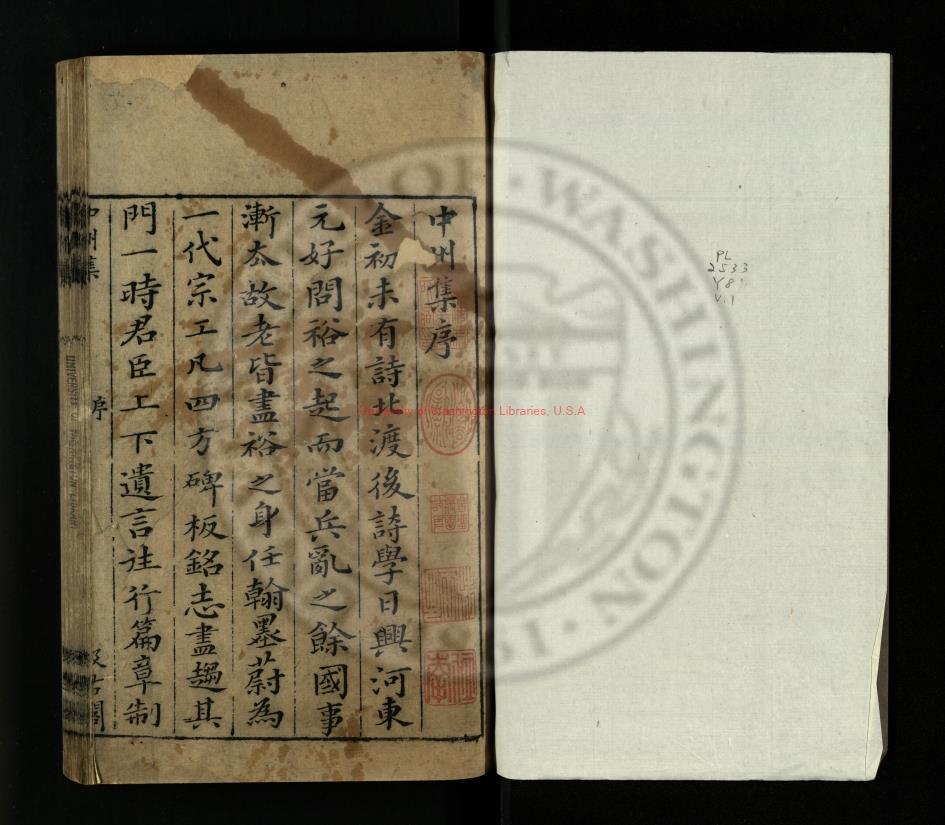 中州集序
金初未有詩北渡後詩學日興河東
元好問裕之起而當兵亂之餘國事
漸去故老皆盡裕之身任翰墨蔚為
一代宗工凡四方碑板銘志盡趨其
門一時君臣上下遺言往行篇章制
中州集
序
汲古閣
PL
2533
Y81
V.1
University of Washington Libraries, U.S.A
WASHINGTON